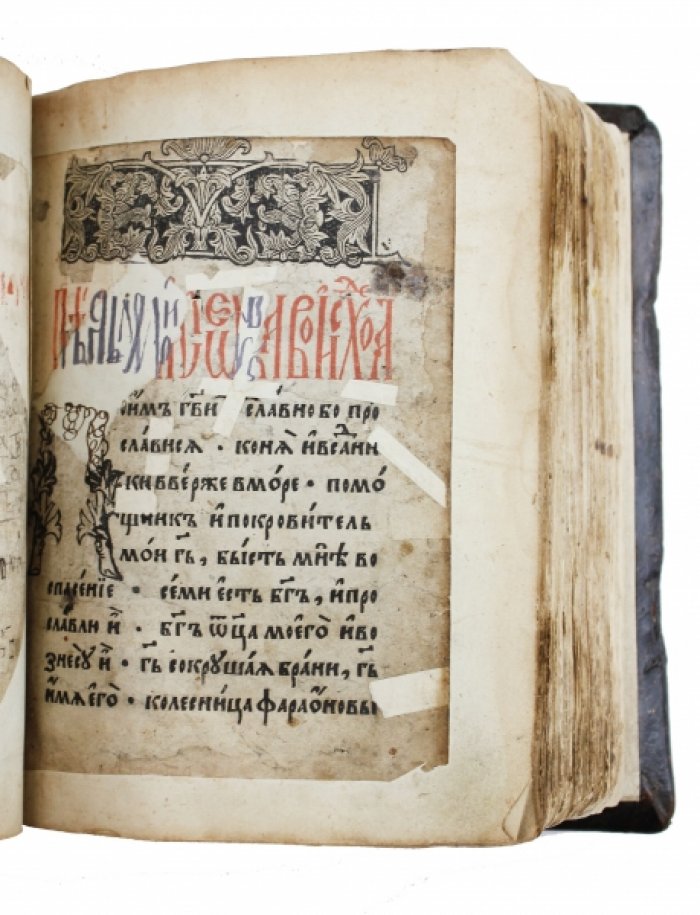 Поимъ гв҃и славно бо про
сла́висѧ · конѧ̀ и҆ всадни
ки вве́рже в мо́ре · помо́
щникъ и҆ покрови́тель
мо́и гь҃, бы́сть мнѣ̀ во
спасе́нїе · се ми е҆сть бг҃ъ, и҆ про
сла́влю и҆̀ · бг҃ъ ѿц҃а моего̀ и҆ во
знесꙋ̀ и҆̀ · гь҃ сокрꙋша́ѧ бра́ни, гь҃
и҆́мѧ е҆го̀ · колесни́ца фараѡ́новы